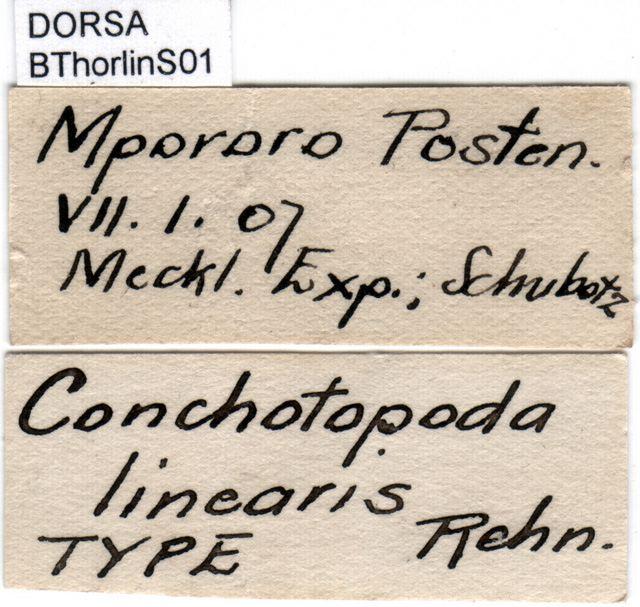 DORSA
BThorlinS01
Mpororo Posten.
VII. 1. 07
Meckl. Exp.; Schubotz
Conchotopoda
linearis
TYPE Rehn.